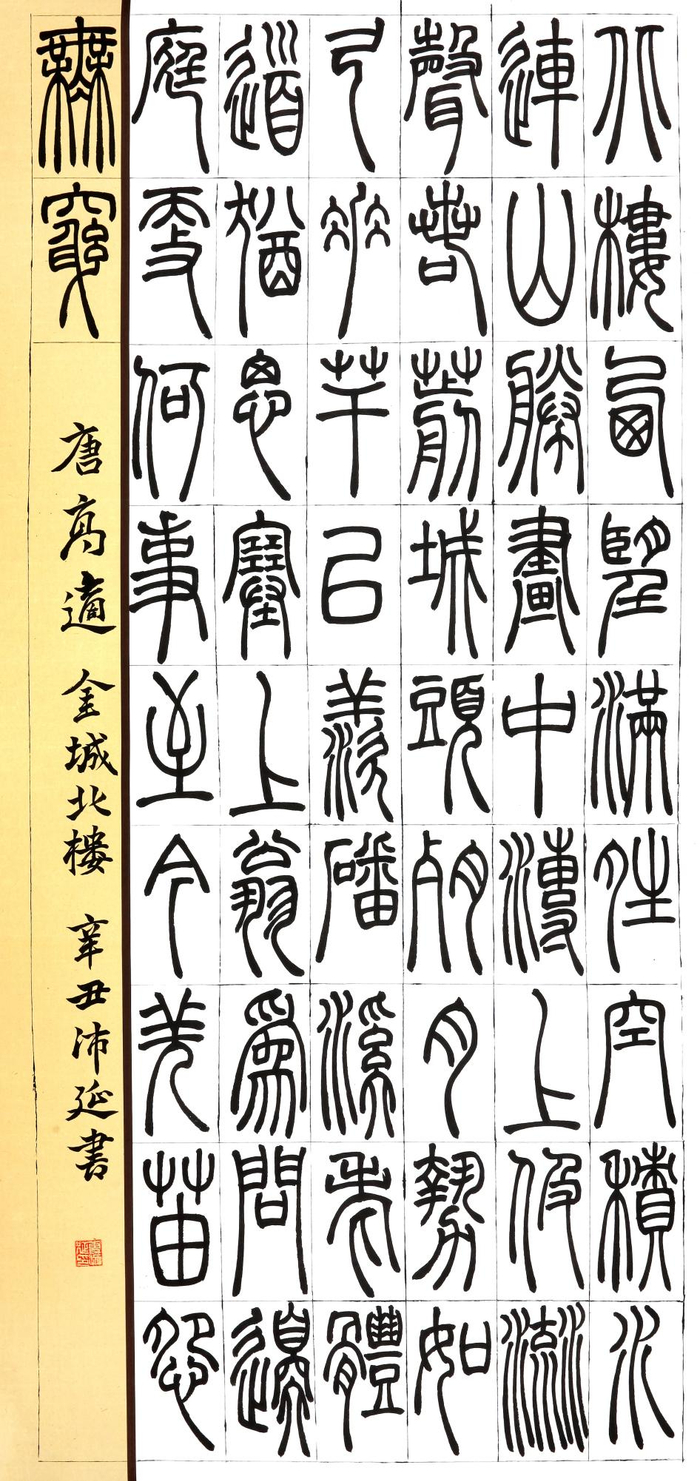 北樓西望滿晴空積水
連山勝畫中湍上急流
聲若箭城頭殘月勢如
弓垂竿已羨磻溪老體
道猶思塞上翁為問邊
庭更何事至今羌笛怨
無窮
唐高適 金城北樓 辛丑沛延書